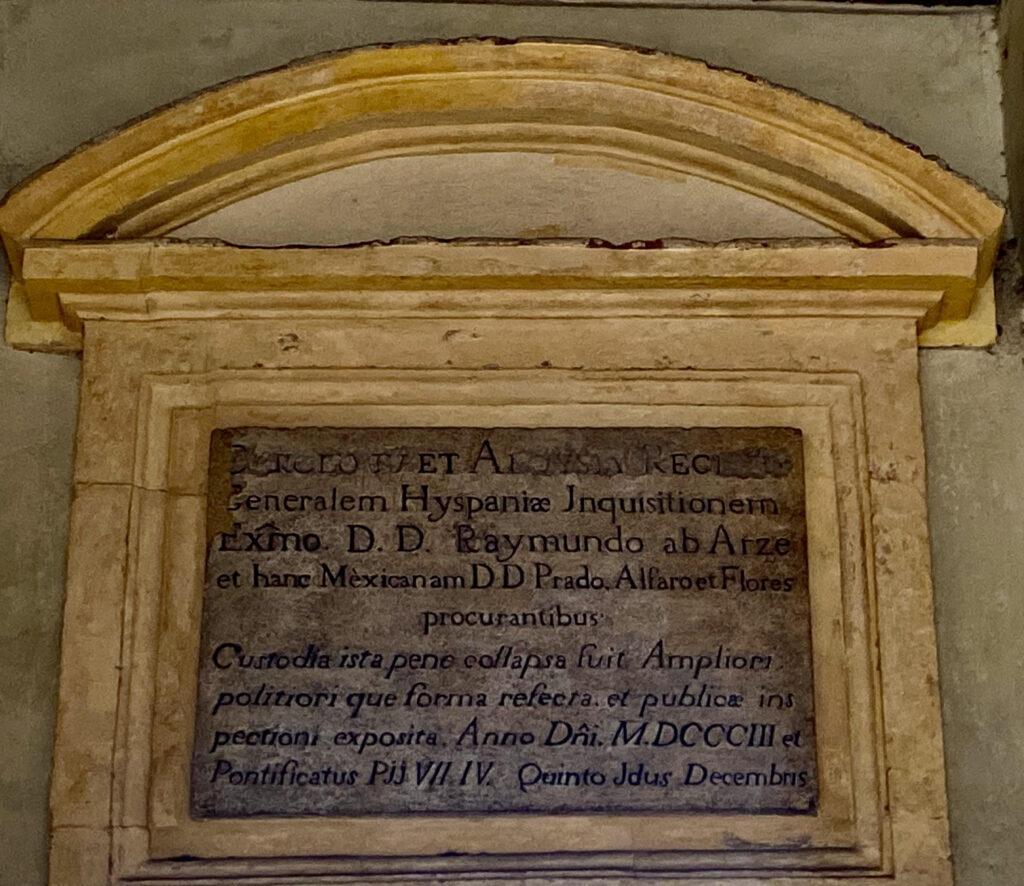 ET
Generalem Hyspaniæ Jnquisitionem
Exm̂o. D. D. Raymundo ab Arze
et hanc Mèxicanam D D Prado, Alfaro et Flores
procurantibus
Custodia ista pene collapsa fuit. Ampliori
politiori que forma refecta. et publicæ ins
pectioni exposita. Anno Dñi. M.DCCCIII et
Pontificatus Pij VII. IV. Quinto Jdus Decembris